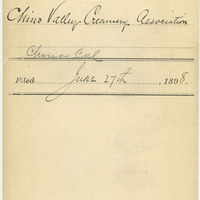 Chino Valley Creamery Association
Chino Cal
Filed June 27th, 1898.